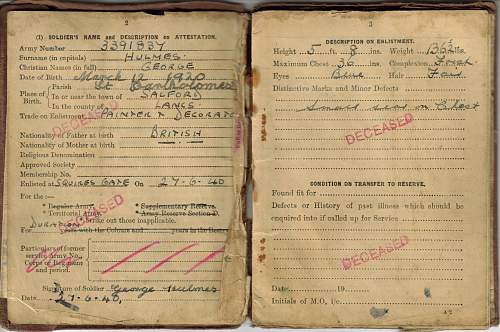 2
(I) SOLDIER'S NAME and DESCRIPTION on ATTESTATION.
Army Number 3391837
Surname (in capitals) HULMES
Christian Names (in full) GEORGE
Date of Birth March 12 1920
Place of Birth. Parish St Bartholomews
In or near the town of SALFORD
In the county of LANCS
Trade on Enlistment PAINTER & DECORATOR
Nationality of Father at birth BRITISH
Nationality of Mother at birth
Religious Denomination
Approved Society
Membership No.
Enlisted at SQUIRES GATE On 27-6-40
For the :—
* Regular Army. * Supplementary Reserve.
* Territorial Army. * Army Reserve Section D.
* Strike out those inapplicable.
DURATION
For years with the Colours and years in the Reserve.
Particulars of former service Army No., Corps or Regiment and period.
Signature of Soldier George Hulmes
Date 27.6.40.
DECEASED
DECEASED
3
DESCRIPTION ON ENLISTMENT.
Height 5 ft. 8 ins. Weight 136½ lbs.
Maximum Chest 36 ins. Complexion Fresh
Eyes Blue Hair Fair
Distinctive Marks and Minor Defects
Small scar on Chest
DECEASED
CONDITION ON TRANSFER TO RESERVE.
Found fit for
Defects or History of past illness which should be
enquired into if called up for Service
DECEASED
Date 19
Initials of M.O. i/c